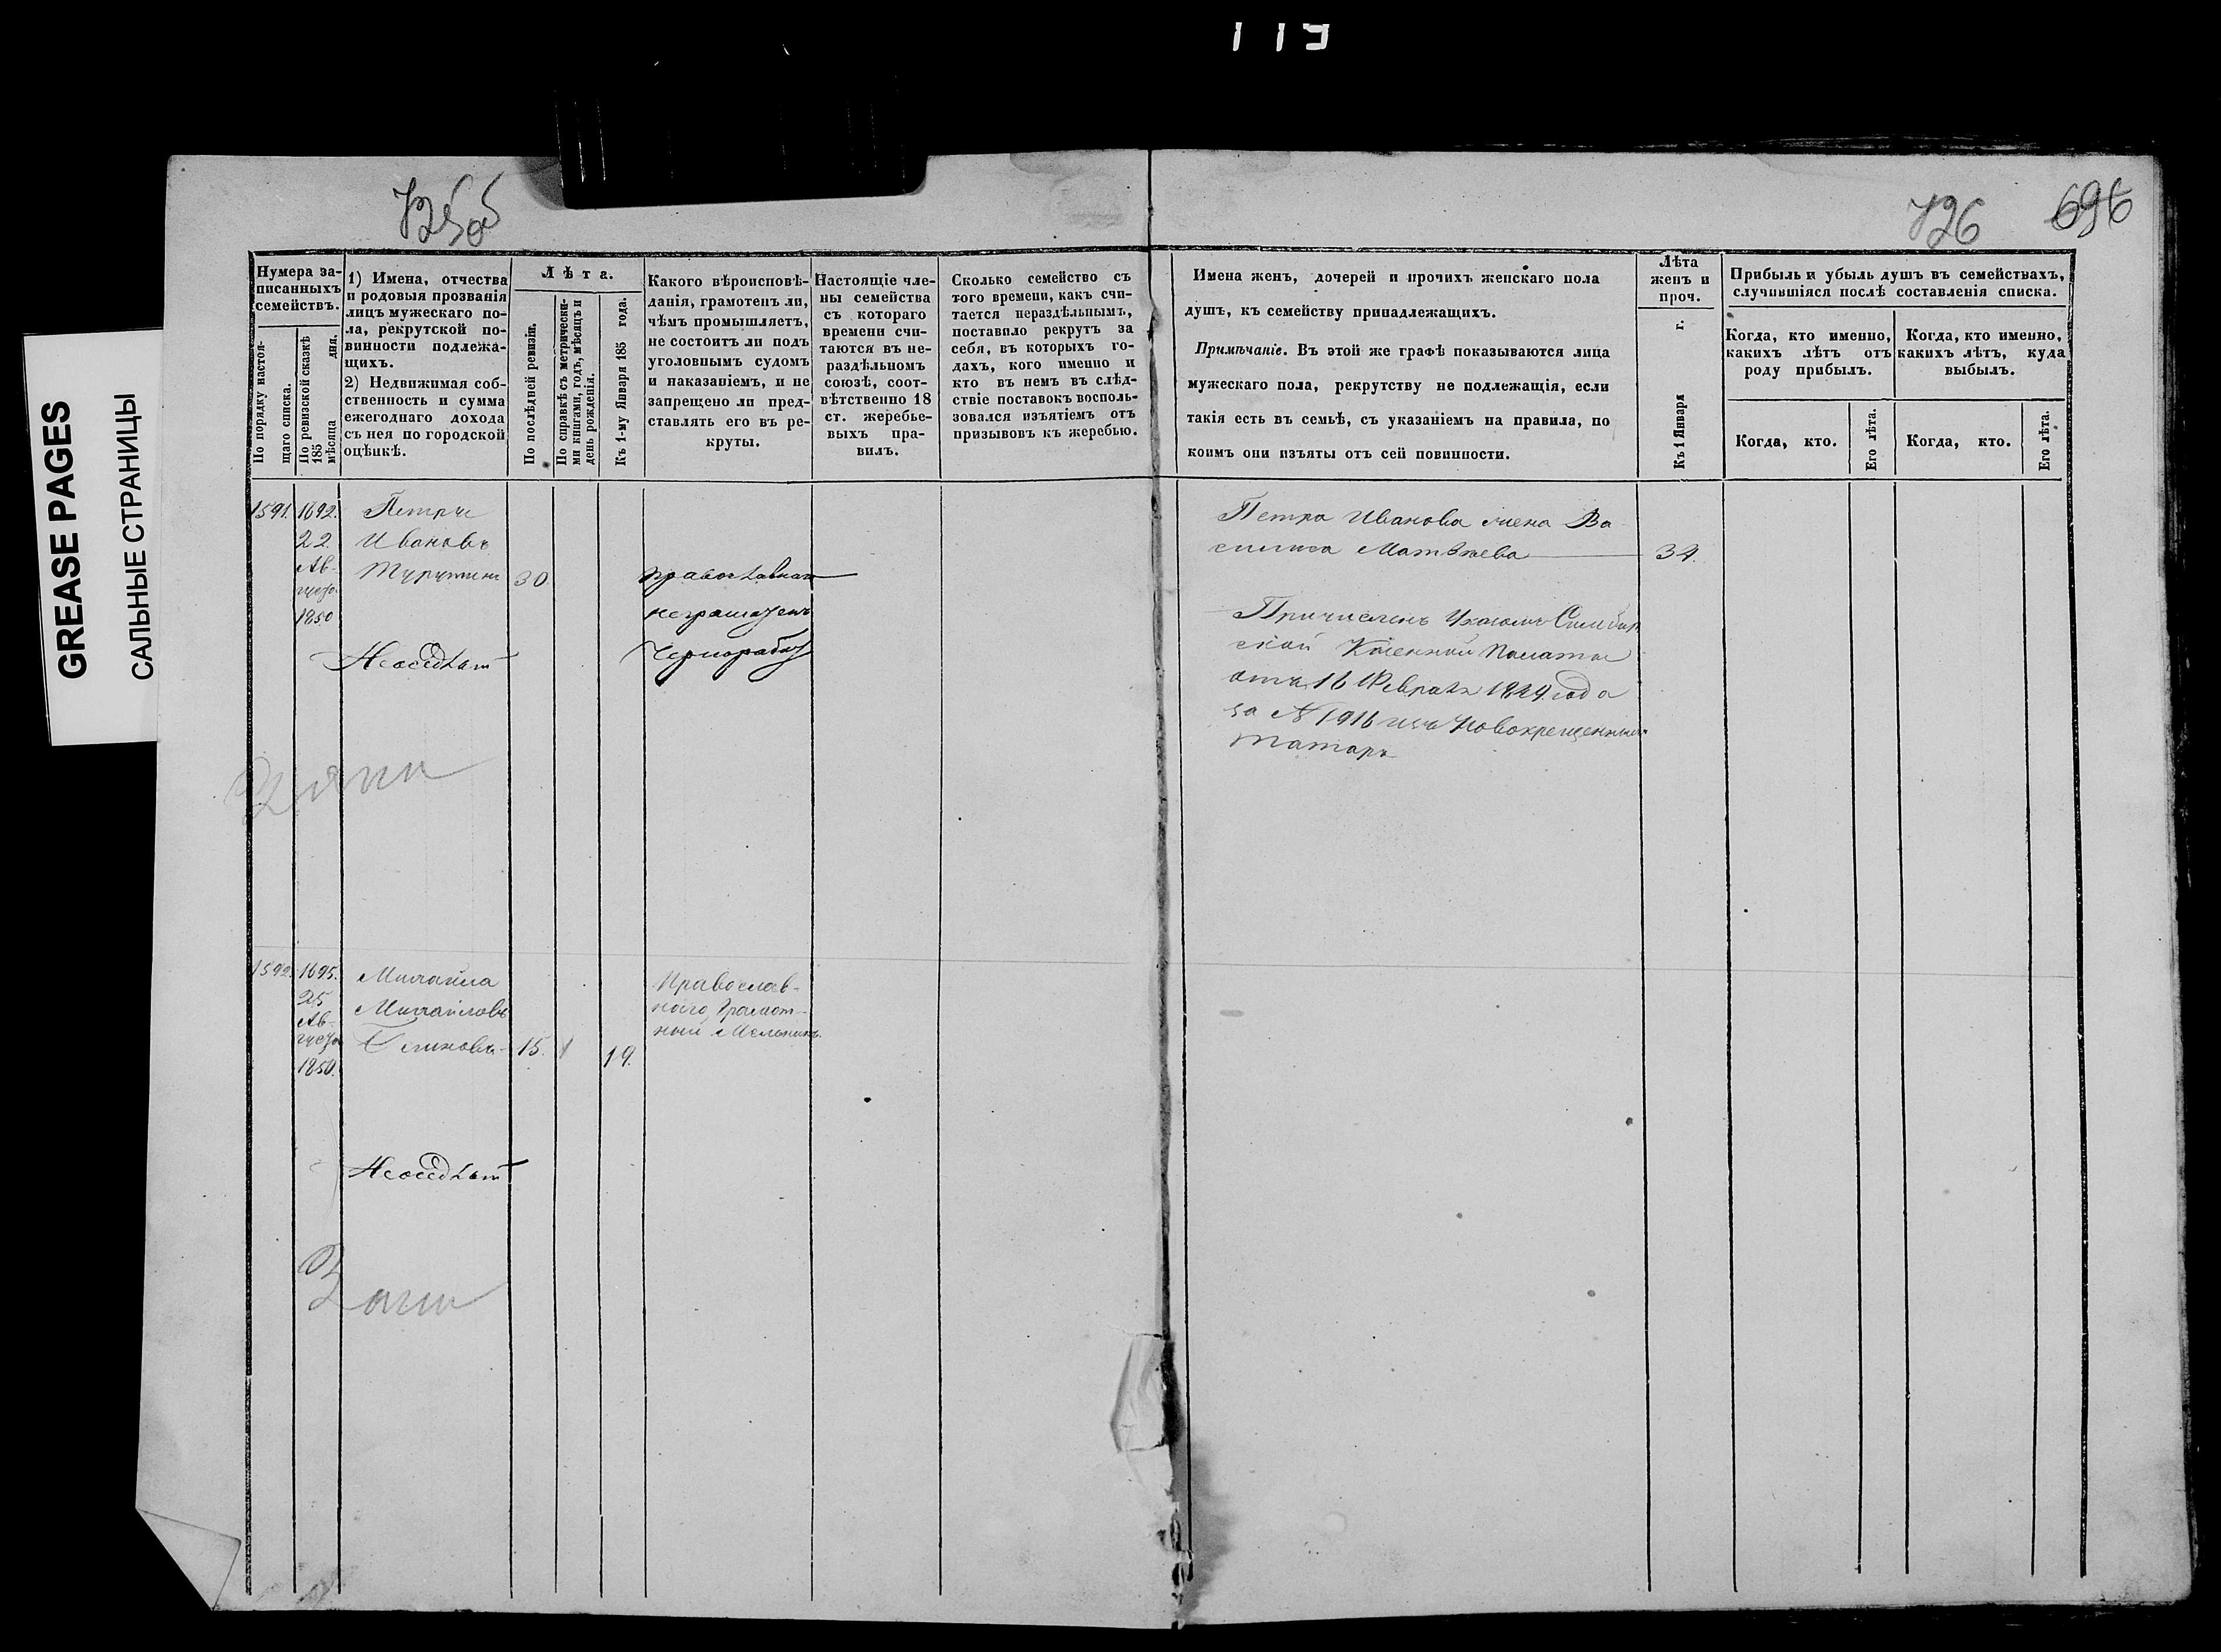 119
GREASE PAGES
САЛЬНЫЕ СТРАНИЦЫ
726 696
Нумера за-
писанныхъ
семействъ.
По порядку настоя-
щаго списка.
По ревизской сказкѣ
185 дня.
мѣсяца
1) Имена, отчества
и родовыя прозванія
лицъ мужескаго по-
ла, рекрутской по-
винности подлежа-
щихъ.
2) Недвижимая соб-
ственность и сумма
ежегоднаго дохода
съ нея по городской
оцѣнкѣ.
Лѣта.
По послѣдней ревизіи.
По справкѣ съ метрически-
ми книгами, годъ, мѣсяцъ и
день рожденія.
Къ 1-му Января 185 года.
Какого вѣроисповѣ-
данія, грамотенъ ли,
чѣмъ промышляетъ,
не состоитъ ли подъ
уголовнымъ судомъ
и наказаніемъ, и не
запрещено ли пред-
ставлять его въ ре-
круты.
Настоящіе чле-
ны семейства
съ котораго
времени счи-
таются въ не-
раздѣльномъ
союзѣ, соот-
вѣтственно 18
ст. жеребье-
выхъ пра-
вилъ.
Сколько семейство съ
того времени, какъ счи-
тается нераздѣльнымъ,
поставило рекрутъ за
себя, въ которыхъ го-
дахъ, кого именно и
кто въ немъ въ слѣд-
ствіе поставокъ восполь-
зовался изъятіемъ отъ
призывовъ къ жеребью.
Имена женъ, дочерей и прочихъ женскаго пола
душъ, къ семейству принадлежащихъ.
Примѣчаніе. Въ этой же графѣ показываются лица
мужескаго пола, рекрутству не подлежащія, если
такія есть въ семьѣ, съ указаніемъ на правила, по
коимъ они изъяты отъ сей повинности.
Лѣта
женъ и
проч.
Къ 1 Января г.
Прибыль и убыль душъ въ семействахъ,
случившіяся послѣ составленія списка.
Когда, кто именно,
какихъ лѣтъ отъ
роду прибылъ.
Когда, кто именно,
какихъ лѣтъ, куда
выбылъ.
Когда, кто.
Его лѣта.
Когда, кто.
Его лѣта.
1591. 1692.
22
Ав-
густа
1850
Петръ
Ивановъ
30
неграмотенъ
Петра Иванова жена Ва-
силиса Матвѣева 34.
Причисленъ Указомъ Симбир
ской Казенной Палаты
отъ 16 Февраля 1849 года
за № 1916 изъ Новокрещенныхъ
татаръ
1592. 1695.
25
Ав-
густа
1850.
Михайла
Михайловъ
15. 19.
Православ-
наго, Грамот-
ный Мельникъ.